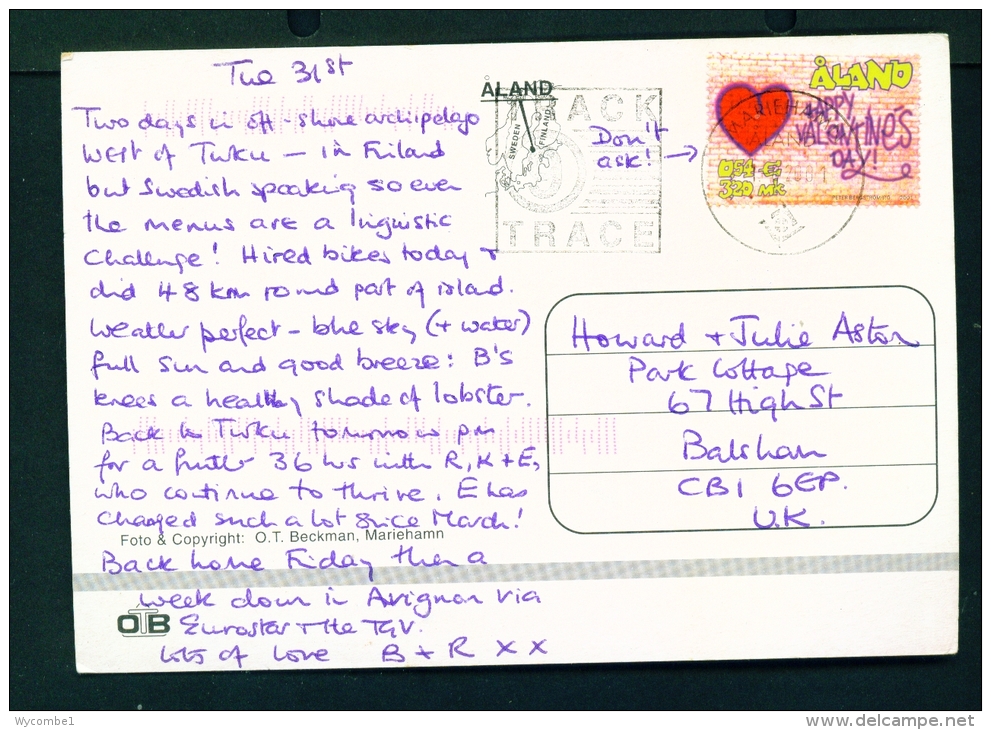 Tue 31st
Two days in off-shore archipelago
West of Turku – in Finland
but Swedish speaking so even
the menus are a linguistic
challenge! Hired bikes today +
did 48 km round part of island.
Weather perfect – blue sky (+ water)
full sun and good breeze: B's
knees a healthy shade of lobster.
Back to Turku tomorrow pm
for a further 36 hrs with R, K + E,
who continue to thrive. E has
changed such a lot since March!
Foto & Copyright: O.T. Beckman, Mariehamn
Back home Friday then a
week down in Avignon via
OTB Eurostar + the TGV.
Lots of love B + R X X
ÅLAND
SWEDEN
FINLAND
ACK
TRACE
Don't
ask! →
ÅLAND
HAPPY
VALENTINE'S
DAY!
0,54 €
3,20 MK
MARIEHAMN
ÅLAND
Howard + Julie Aston
Park Cottage
67 High St
Balsham
CB1 6EP.
U.K.
Wycombe1
www.delcampe.net